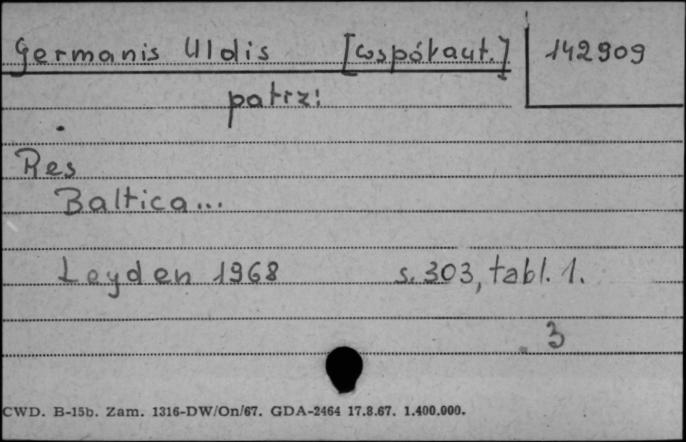 Germanis Uldis [współaut.] 142909
patrz:
Res
Baltica...
Leyden 1968 s. 303, tabl. 1.
3
CWD. B-15b. Zam. 1316-DW/On/67. GDA-2464 17.8.67. 1.400.000.